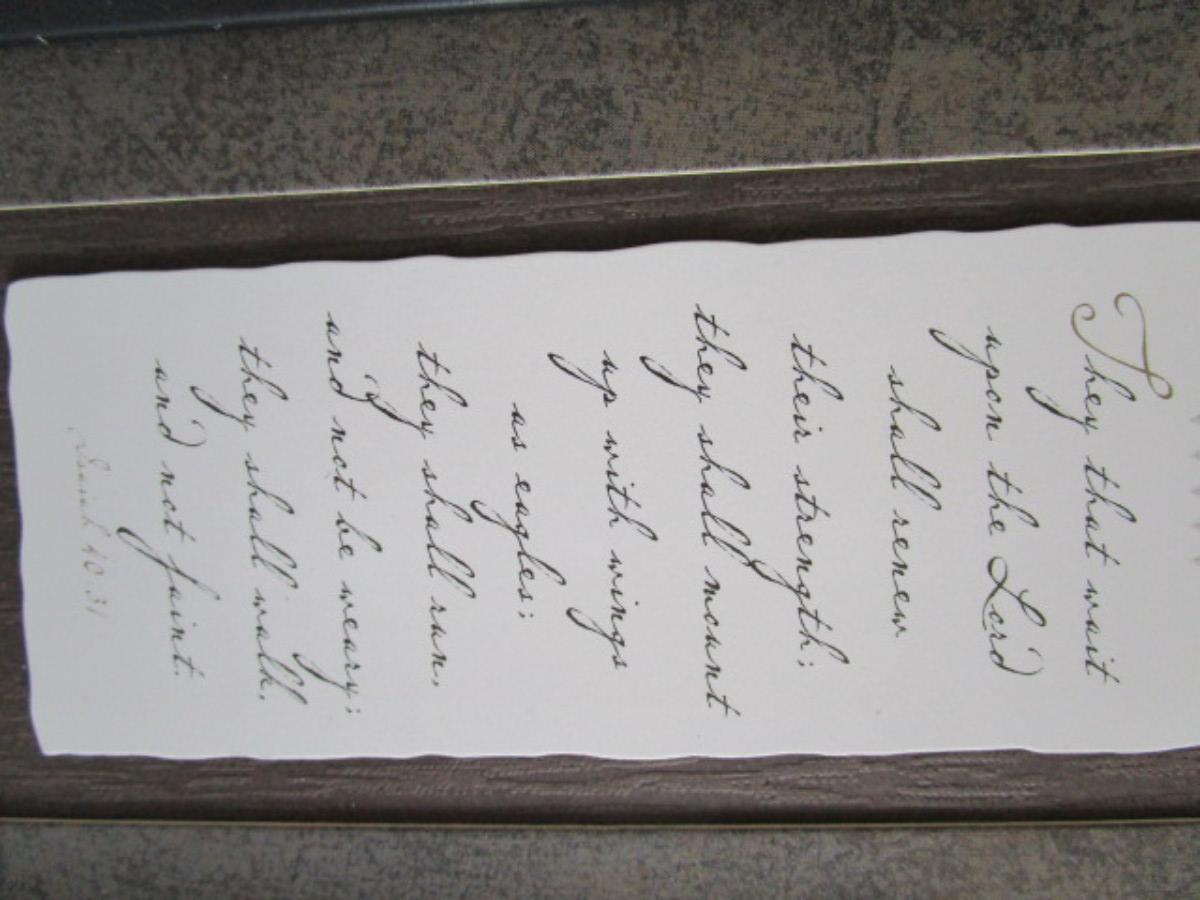 They that wait
upon the Lord
shall renew
their strength;
they shall mount
up with wings
as eagles;
they shall run,
and not be weary;
they shall walk,
and not faint.
Isaiah 40:31